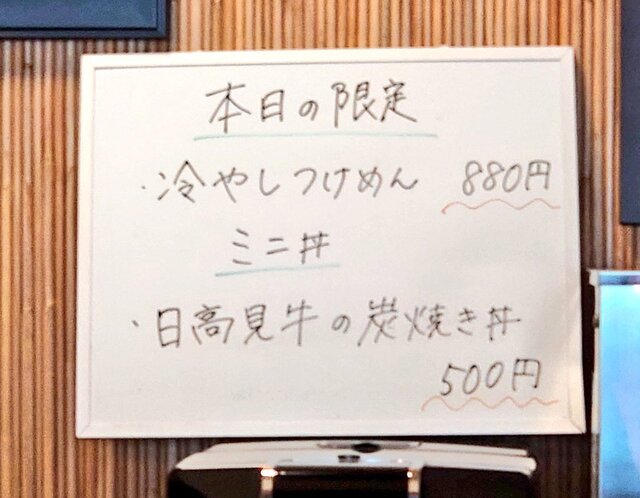 本日の限定
・冷やしつけめん 880円
ミニ丼
・日高見牛の炭焼き丼
500円